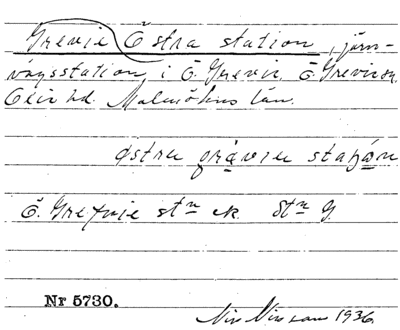 Grevie Östra station, järn-
vägsstation i Ö. Grevie, Ö. Grevie sn
Oxie hd. Malmöhus län.
östra grävie station
Ö. Grefvie stn ek. Stn G.
Nr 5730.
1936